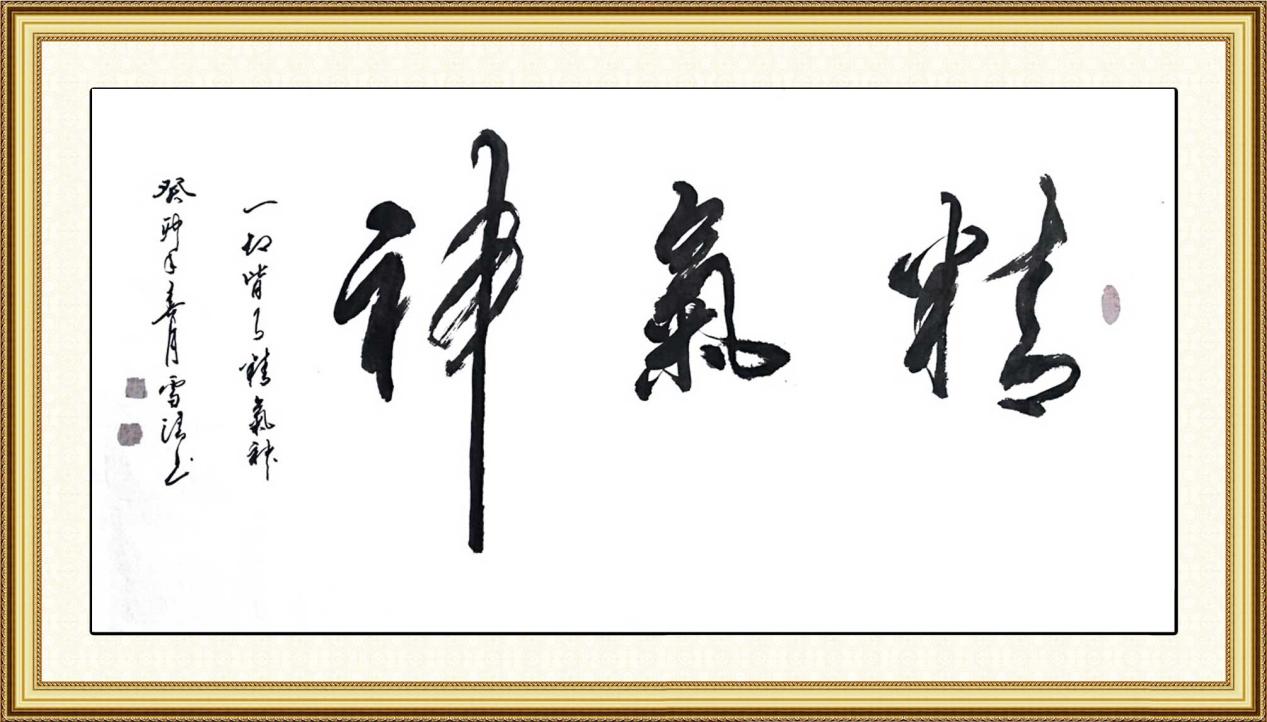 精氣神
一切皆为精氣神
癸卯年春月雪书